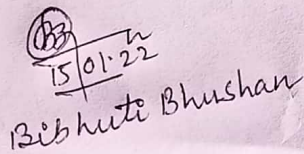 15/01.22
Bibhuti Bhushan